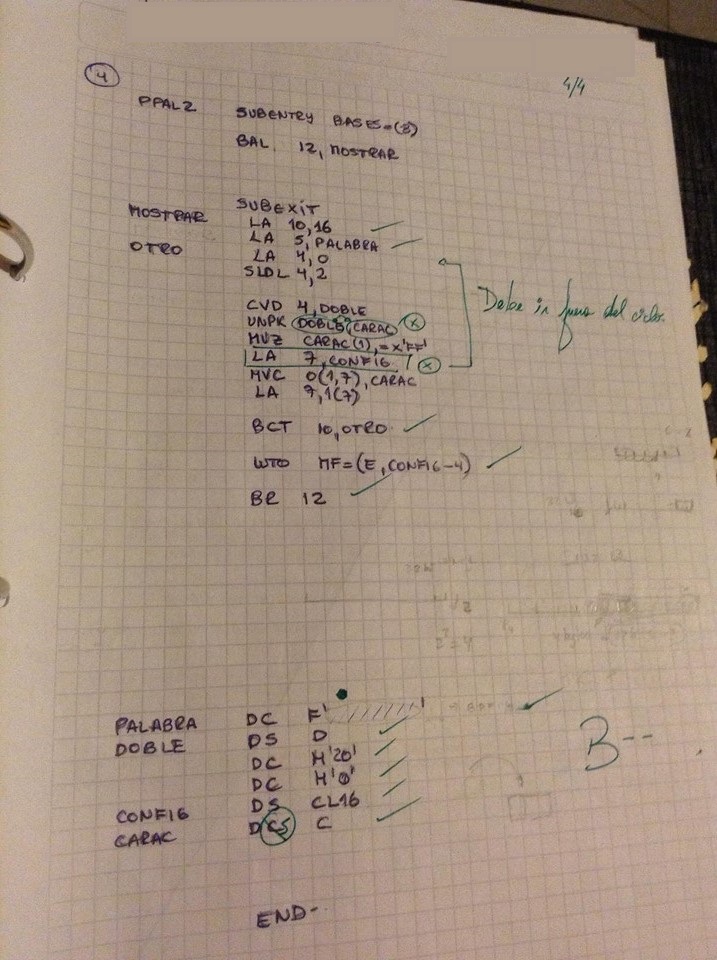 4
4/4
PPAL2 SUBENTRY BASES=(3)
BAL 12, MOSTRAR
SUBEXIT
MOSTRAR LA 10,16
LA 5, PALABRA
OTRO LA 4,0
SLDL 4,2
CVD 4, DOBLE
UNPK DOBLE, CARAC X
MVZ CARAC(1),=X'FF'
LA 7, CONFIG X
MVC 0(1,7), CARAC
LA 7,1(7)
Debe ir fuera del ciclo.
BCT 10, OTRO
WTO MF=(E, CONFIG-4)
BR 12
PALABRA DC F' '
DOBLE DS D
DC H'20'
DC H'0'
CONFIG DS CL16
CARAC C
B--
END-